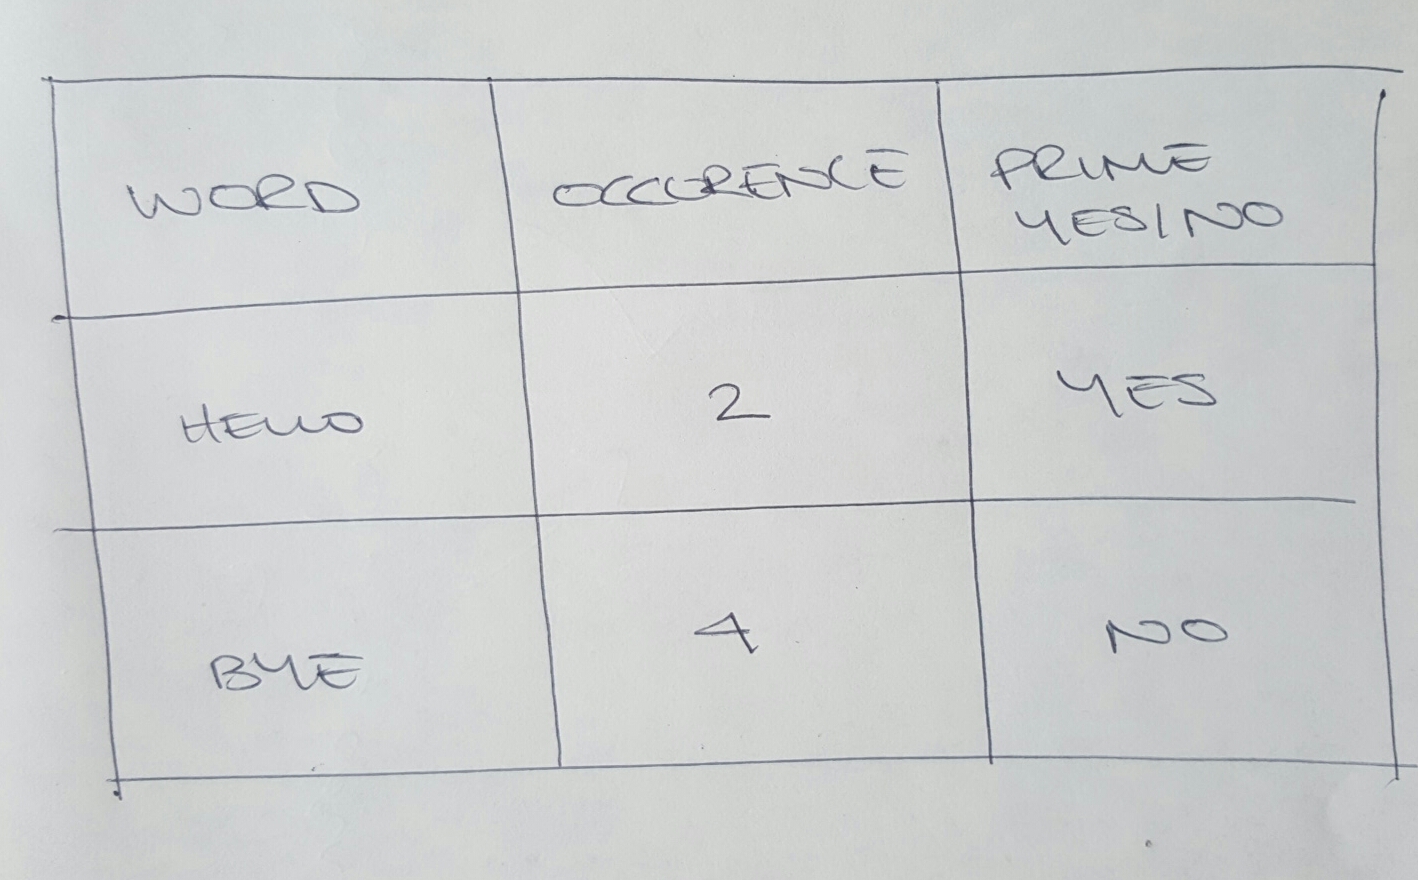 WORD
OCCURENCE
PRIME
YES/NO
HELLO
2
YES
BYE
4
NO